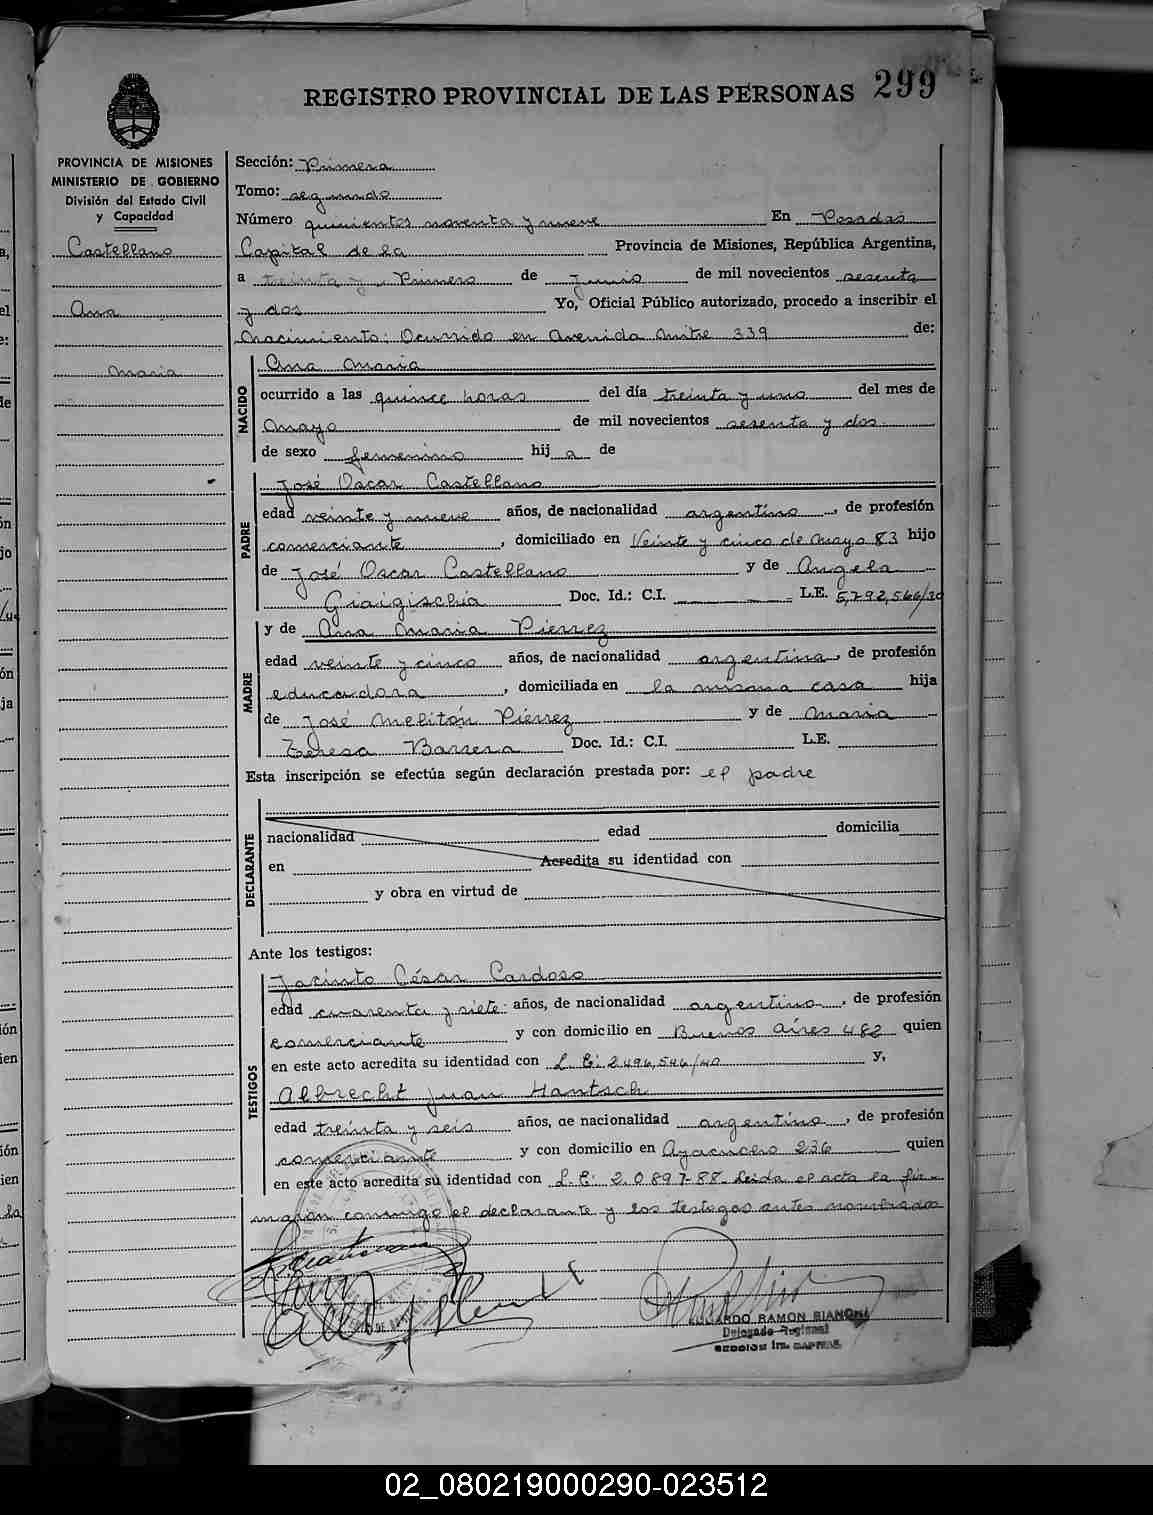 REGISTRO PROVINCIAL DE LAS PERSONAS 299
PROVINCIA DE MISIONES
MINISTERIO DE GOBIERNO
División del Estado Civil
y Capacidad
Castellano
Ana
Maria
Sección: Primera
Tomo: segundo
Número quinientos noventa y nueve En Posadas
Capital de la Provincia de Misiones, República Argentina,
a treinta y Primero de Junio de mil novecientos sesenta
y dos Yo, Oficial Público autorizado, procedo a inscribir el
Nacimiento: Ocurrido en Avenida Mitre 339 de:
NACIDO
Ana Maria
ocurrido a las quince horas del día treinta y uno del mes de
Mayo de mil novecientos sesenta y dos
de sexo femenino hij a de
PADRE
José Oscar Castellano
edad veinte y nueve años, de nacionalidad argentino, de profesión
comerciante, domiciliado en Veinte y cinco de Mayo 83 hijo
de José Oscar Castellano y de Angela
Giaigischia Doc. Id.: C.I. L.E. 5,792,566/
MADRE
y de Ana Maria Pierrez
edad veinte y cinco años, de nacionalidad argentina, de profesión
educadora, domiciliada en la misma casa hija
de José Melitón Piérrez y de Maria
Teresa Barrera Doc. Id.: C.I. L.E.
Esta inscripción se efectúa según declaración prestada por: el padre
DECLARANTE
nacionalidad edad domicilia
en Acredita su identidad con
y obra en virtud de
Ante los testigos:
TESTIGOS
Jacinto César Cardoso
edad cuarenta y siete años, de nacionalidad argentino, de profesión
comerciante y con domicilio en Buenos Aires 482 quien
en este acto acredita su identidad con L.E: 2.496,546/40 y,
Albrecht Juan Hantsch
edad treinta y seis años, de nacionalidad argentino, de profesión
comerciante y con domicilio en Ayacucho 236 quien
en este acto acredita su identidad con L.E: 2.0897-88 Leida el acta la fir-
maron conmigo el declarante y los testigos antes nombrados
RAMON BIANCHI
Delegado Regional
SECCION 1ra. CAPITAL
02_080219000290-023512